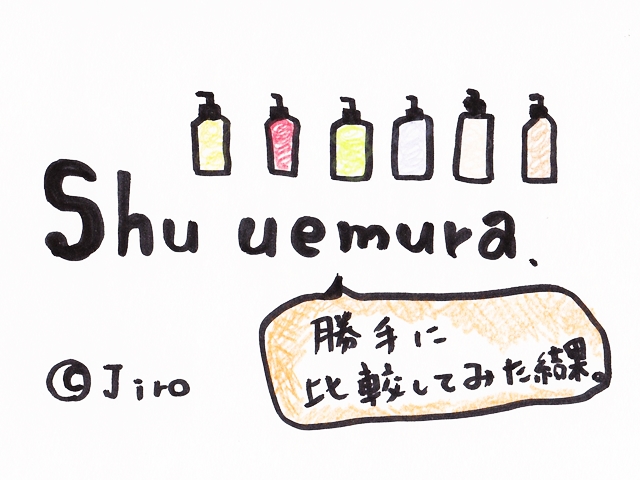 Shu uemura.
勝手に
比較してみた結果。
©Jiro